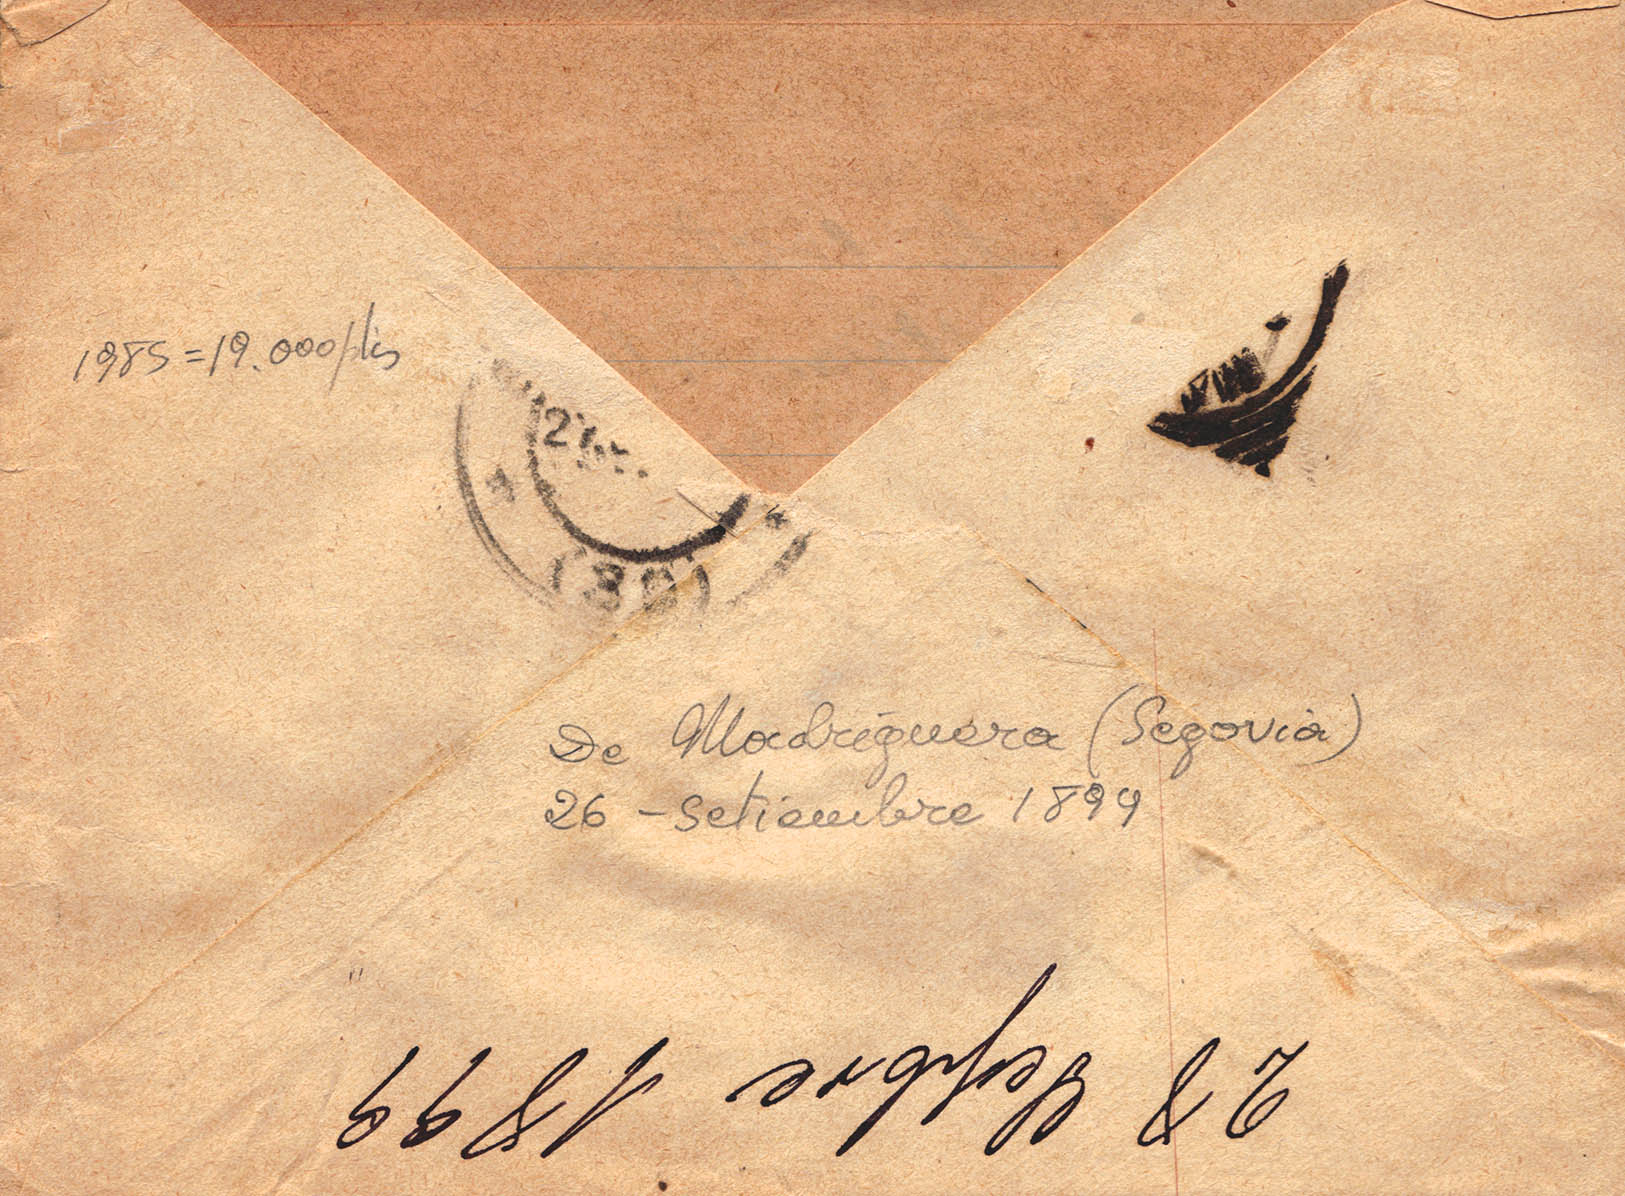 1985=19.000 pts
(36)
De Madriguera (Segovia)
26 - Setiembre 1899
28 Sepbre 1899